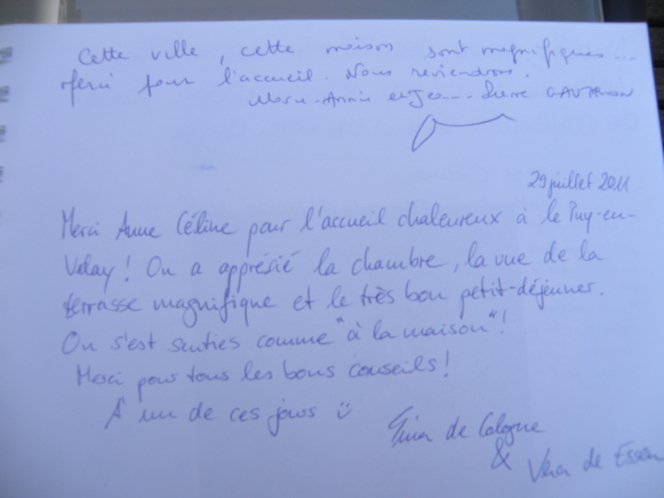 Cette ville, cette maison sont magnifiques...
Merci pour l'accueil. Nous reviendrons.
Marie-Annie et Jean-Pierre
29 juillet 2011
Merci Anne Céline pour l'accueil chaleureux à le Puy-en-
Velay! On a apprécié la chambre, la vue de la
terrasse magnifique et le très bon petit-déjeuner.
On s'est senties comme "à la maison"!
Merci pour tous les bons conseils!
À un de ces jours ü
de Cologne
& Vera de Essen